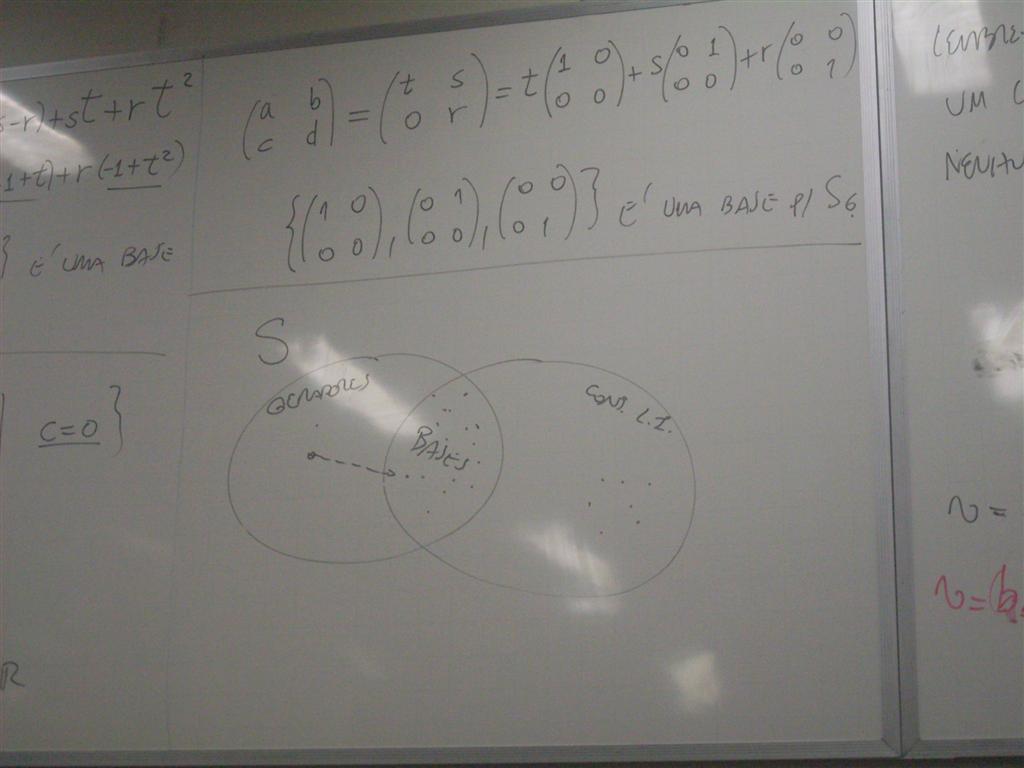 -r)+st+rt²
1+t)+r(-1+t²)
} É UMA BASE
c=0 }
R
(a b
c d) = (t s
0 r) = t(1 0
0 0) + s(0 1
0 0) + r(0 0
0 1)
{(1 0
0 0), (0 1
0 0), (0 0
0 1)} É UMA BASE P/ S₆
S
GERADORES
BASES
CONJ. L.I.
UM
v =
v = (b